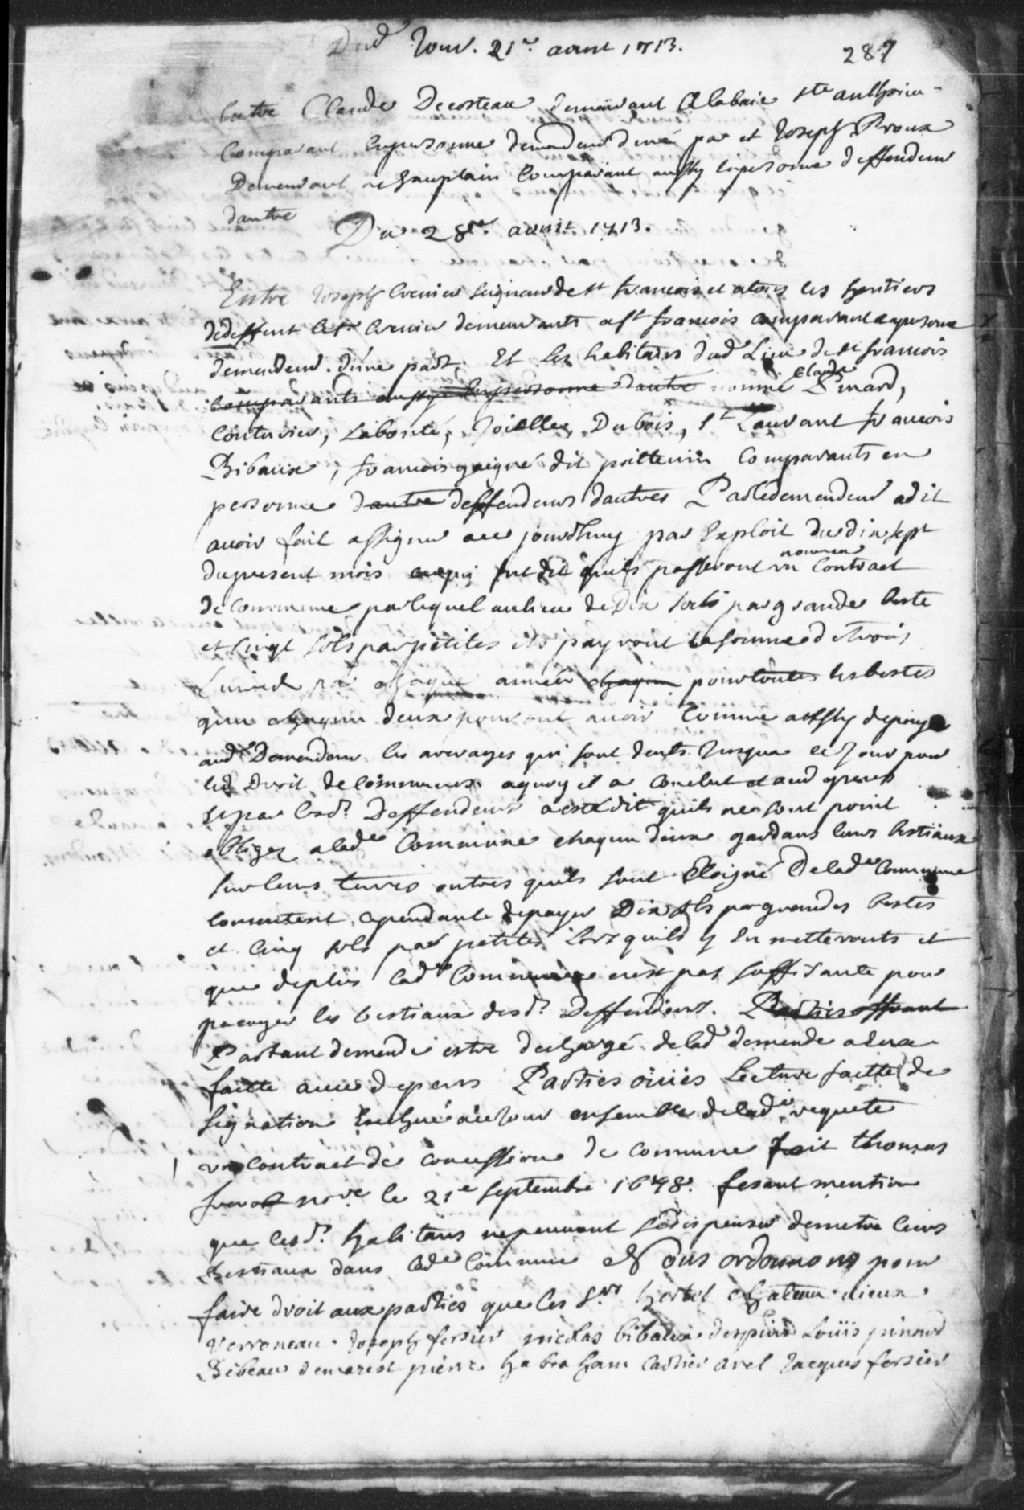 Dud. Jour. 21e. avril 1713.
287
Entre Claude Decosteau demeurant Alabaie ste anthoine
Comparant Enpersonne demandeur dune part et Joseph Proux
Demeurant a Champlain Comparant aussy enpersonne deffendeur
dautre
Du 28e. avril 1713.
Entre Joseph Crevier seigneur de st francois et les heritiers
dedeffunt le sr. Crevier demeurants a st francois comparant enpersonne
demandeur. dune part. Et les habitans dud. Lieu de st francois
comparants aussy Enpersonne dautre nommé Claude Pinard,
Couturier, Labonté, Joielle, Dubois, st Laurant francois
Ribaux, francois gaigné dit poittevin Comparants en
personne dautre deffendeurs dautres Partedemendeur adit
avoir fait assigner au jourdhuy par Exploit du dix sept
dupresent mois dit quils passeront un nouveau Contract
decommune par lequel aulieu de Dix sols par grande beste
et Cinq sols par petites ils payront la somme de trois
par chaque année chaqun pour toutes les bestes
que chaqun deux pouront avoir Comme aussy depayer
aud. Demandeur les arerages qui sont deubs Jusqua ce Jour pour
led. Droit de Commune aquoy il a Conclut et aud.
et par lesd. Deffendeurs aesté dit quils ne sont point
obligez a lade. Commune chaqun deux gardans leurs bestiaux
sur leurs terres outres quils sont Eloigné Delade. Commune
consentent cependant depayer Dix sols par grandes bestes
et Cinq sols par petites Lors quilz y En metteronts et
que deplus lade. Commune nest pas suffisante pour
pacager les bestiaux desd. Deffendeurs. Parties offrant
Partant demende estre dechargé delad. demende aleur
faitte avec depens Parties ouies Lecture faitte de
signation Echue ace Jour ensemble delade. requete
un Contract de concession de commune fait thomas
nore le 21e septembre 1678. fesant mention
que lesd. habitans nepeuvent sedispenser demetre leurs
Bestiaux dans lade. Commune Nous ordonnons pour
faire droit aux parties que les srs. hertel
Verroneau. Joseph fersier nicolas bibaux. Louis pinard
Bibeau demarest pierre habraham Cartier avel Jacques fersier